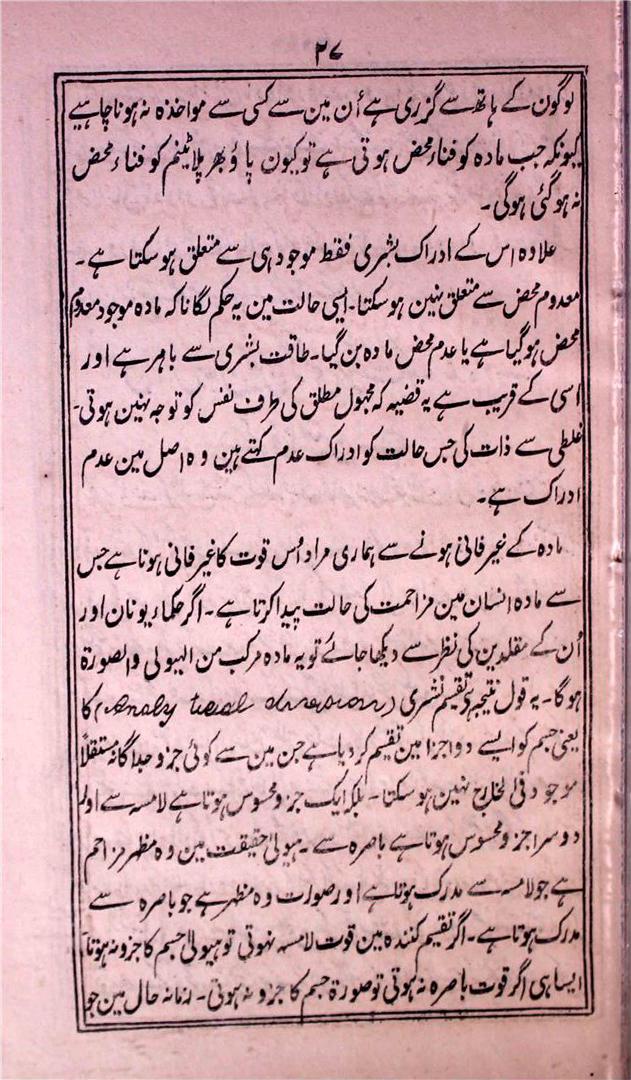 ۲۷
لوگون کے ہاتھ سے گزری ہے اُن مین سے کسی سے مواخذہ نہ ہونا چاہیے
کیونکہ جب مادہ کو فناء محض ہوتی ہے تو کیون پاؤ بھر پلاٹینم کو فناء محض
نہ ہوگئی ہوگی۔
علاوہ اس کے ادراک بشری فقط موجود ہی سے متعلق ہوسکتا ہے۔
معدوم محض سے متعلق نہین ہوسکتا۔ ایسی حالت مین یہ حکم لگانا کہ مادہ موجود معدوم
محض ہوگیا ہے یا عدم محض مادہ بن گیا۔ طاقت بشری سے باہر ہے اور
اسی کے قریب ہے یہ قضیہ کہ مجہول مطلق کی طرف نفس کو توجہ نہین ہوتی۔
غلطی سے ذات کی جس حالت کو ادراک عدم کہتے ہین وہ اصل مین عدم
ادراک ہے۔
مادہ کے غیر فانی ہونے سے ہماری مراد اُس قوت کا غیر فانی ہونا ہے جس
سے مادہ انسان مین مزاحمت کی حالت پیدا کرتا ہے۔ اگر حکماء یونان اور
اُن کے مقلدین کی نظر سے دیکھا جائے تو یہ مادہ مرکب من الہیولی والصورة
ہوگا۔ یہ قول نتیجہ ہے تقسیم نشری (Analy tical division) کا
یعنی جسم کو ایسے دو اجزا مین تقسیم کر دیا ہے جن مین سے کوئی جزو جداگانہ مستقلاً
موجود فی الخارج نہین ہوسکتا۔ بلکہ ایک جزو محسوس ہوتا ہے لامسہ سے اور
دوسرا جزو محسوس ہوتا ہے باصرہ سے۔ ہیولیٰ حقیقت مین وہ مظہر مزاحم
ہے جو لامسہ سے مدرک ہوتا ہے اور صورت وہ مظہر ہے جو باصرہ سے
مدرک ہوتا ہے۔ اگر تقسیم کنندہ مین قوت لامسہ نہوتی تو ہیولیٰ جسم کا جزو نہ ہوتا۔
ایسا ہی اگر قوت باصرہ نہ ہوتی تو صورة جسم کا جزو نہ ہوتی۔ زمانہ حال مین جو